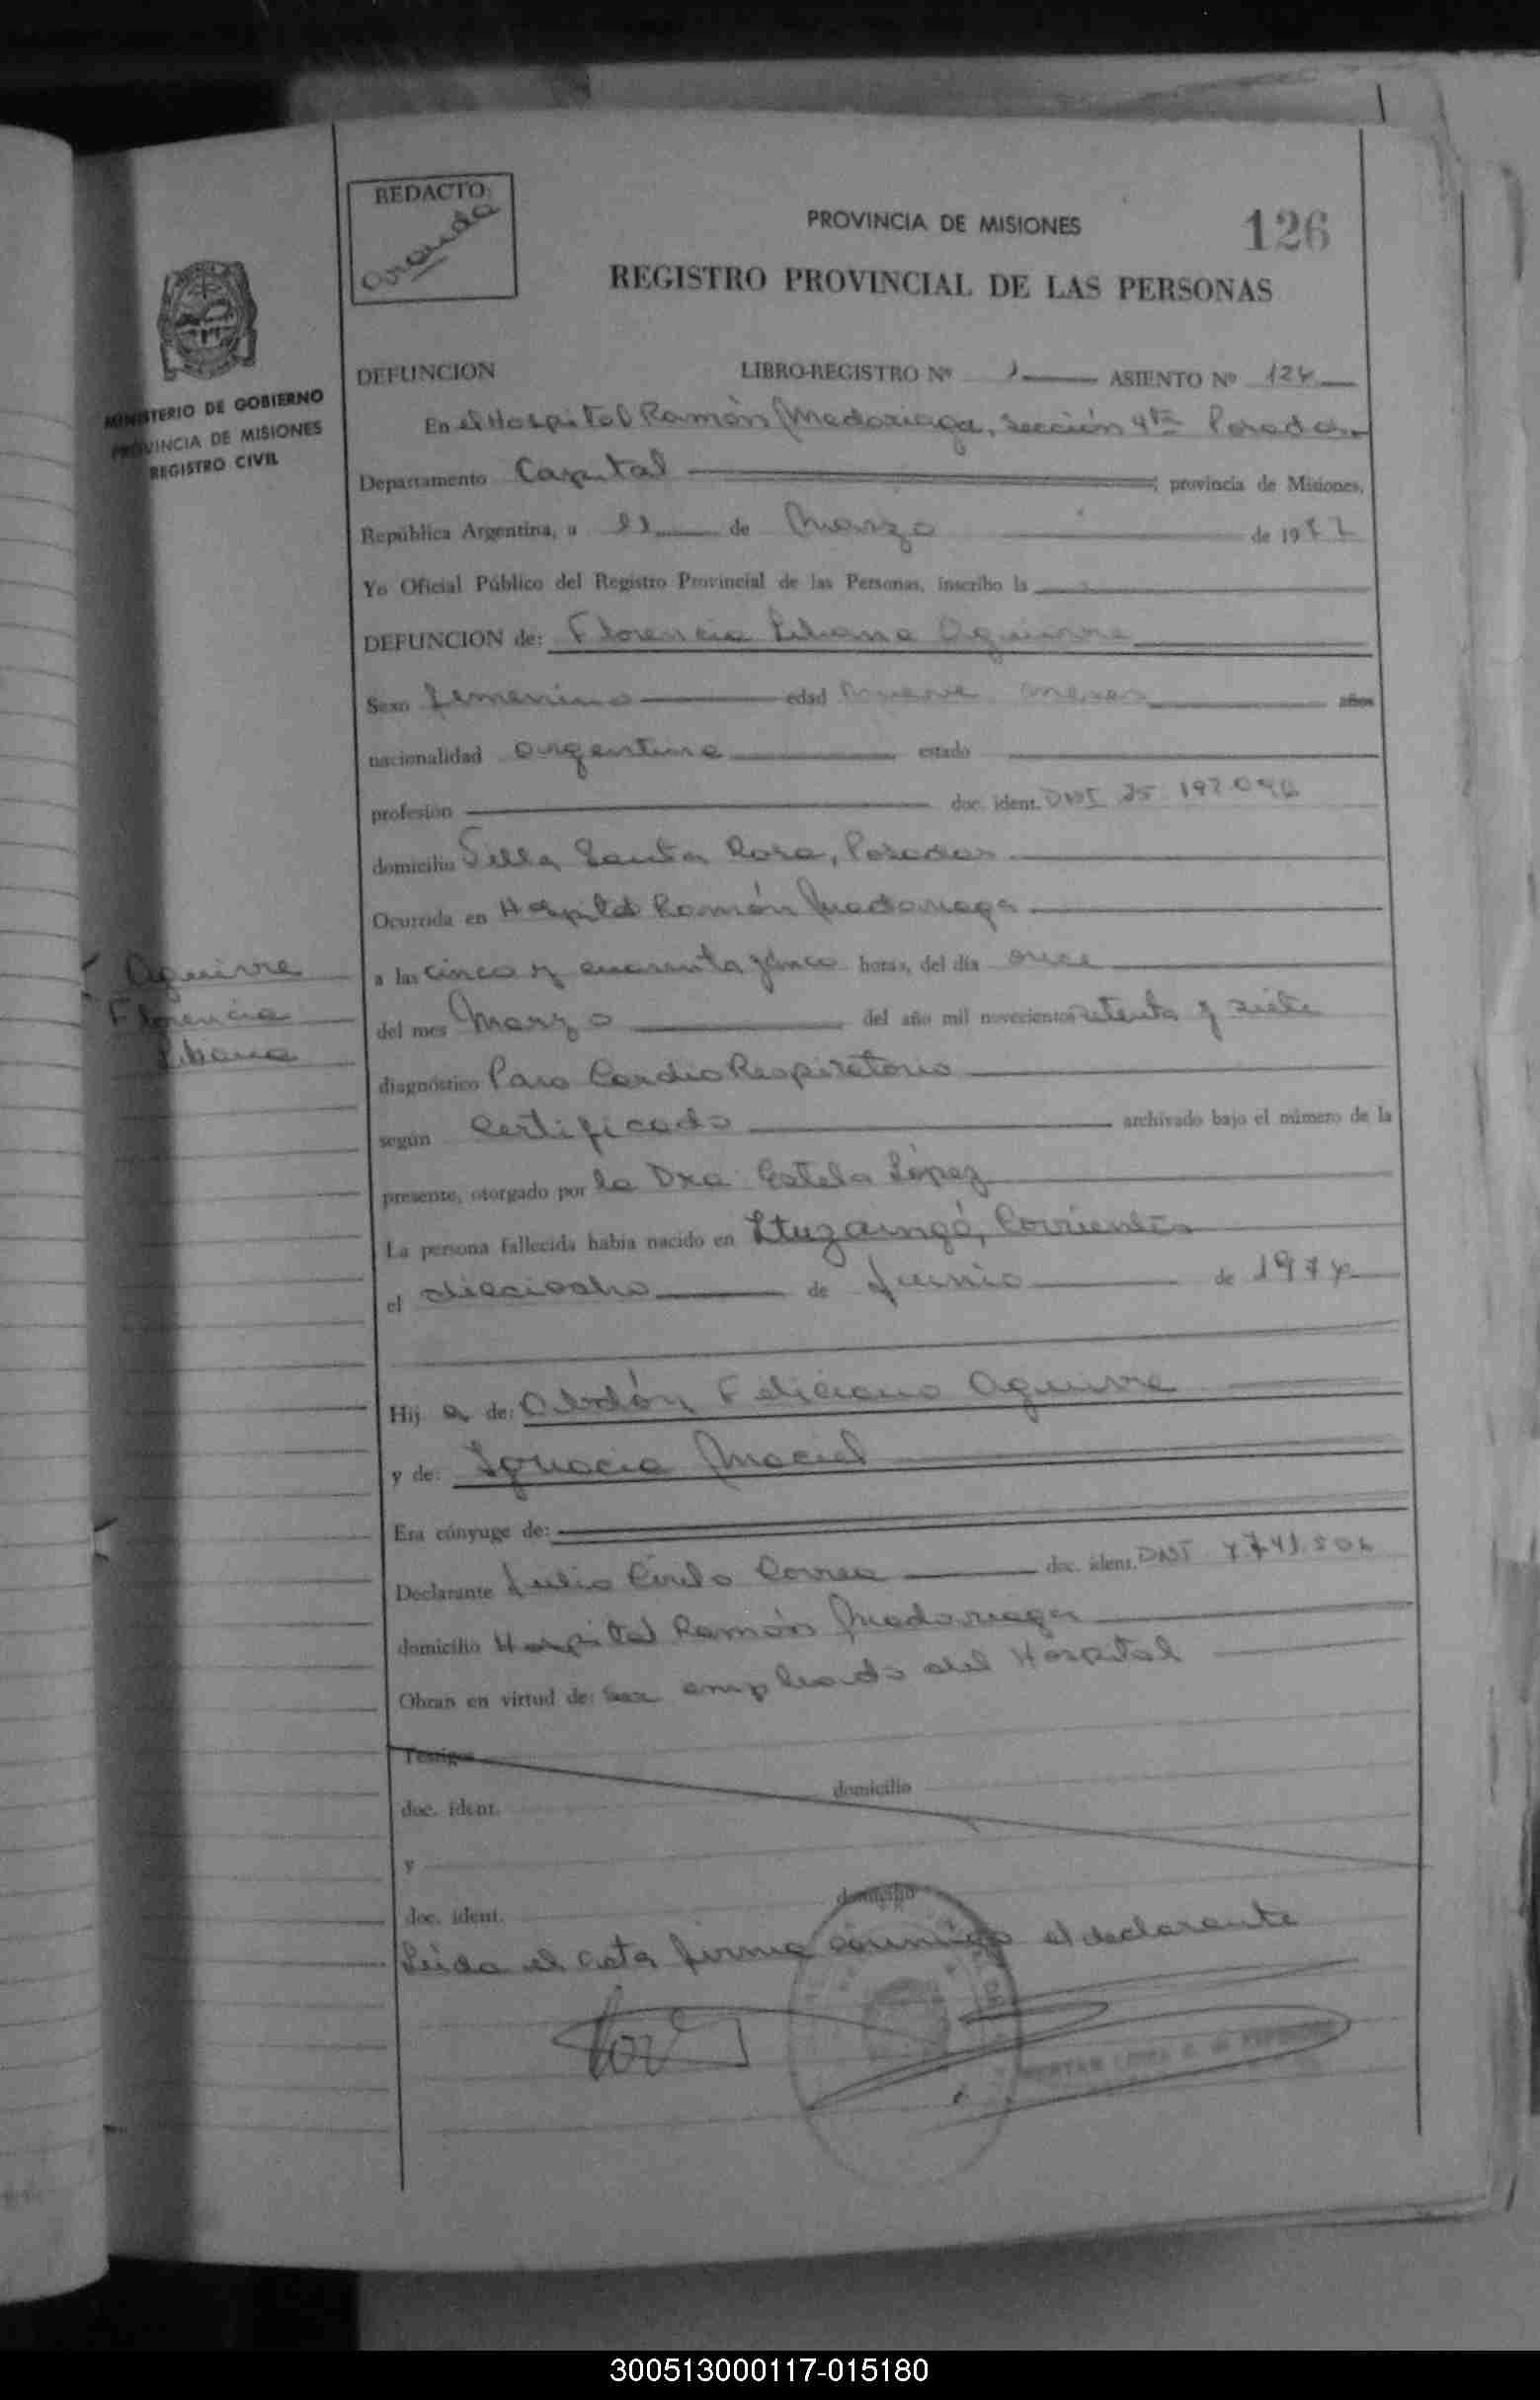 REDACTO:
Aranda
PROVINCIA DE MISIONES
126
REGISTRO PROVINCIAL DE LAS PERSONAS
MINISTERIO DE GOBIERNO
PROVINCIA DE MISIONES
REGISTRO CIVIL
DEFUNCION LIBRO-REGISTRO Nº 1 ASIENTO Nº 124
En el Hospital Ramón Madariaga, sección 4ta Posadas
Departamento Capital ; provincia de Misiones,
República Argentina, a 11 de Marzo de 19
Yo Oficial Público del Registro Provincial de las Personas, inscribo la
DEFUNCION de: Florencia Liliana Aguirre
Sexo femenino edad nueve meses años
nacionalidad argentina estado
profesión doc. ident. DNI 25.197.096
domicilio Villa Santa Rosa, Posadas
Ocurrida en Hospital Ramón Madariaga
a las cinco y cuarenta y cinco horas, del día once
del mes Marzo del año mil novecientos setenta y siete
diagnóstico Paro Cardio Respiratorio
según Certificado archivado bajo el número de la
presente, otorgado por la Dra Estela López
La persona fallecida había nacido en Ituzaingó, Corrientes
el dieciocho de Junio de 197
Aguirre
Florencia
Liliana
Hij a de: Abdón Feliciano Aguirre
y de: Ignacia Maciel
Era cónyuge de:
Declarante Julio Cirilo Correa doc. ident. DNI 7.741.50
domicilio Hospital Ramón Madariaga
Obran en virtud de: ser empleado del Hospital
Testigos
doc. ident. domicilio
y
doc. ident. domicilio
Leida el acta firma conmigo el declarante
300513000117-015180